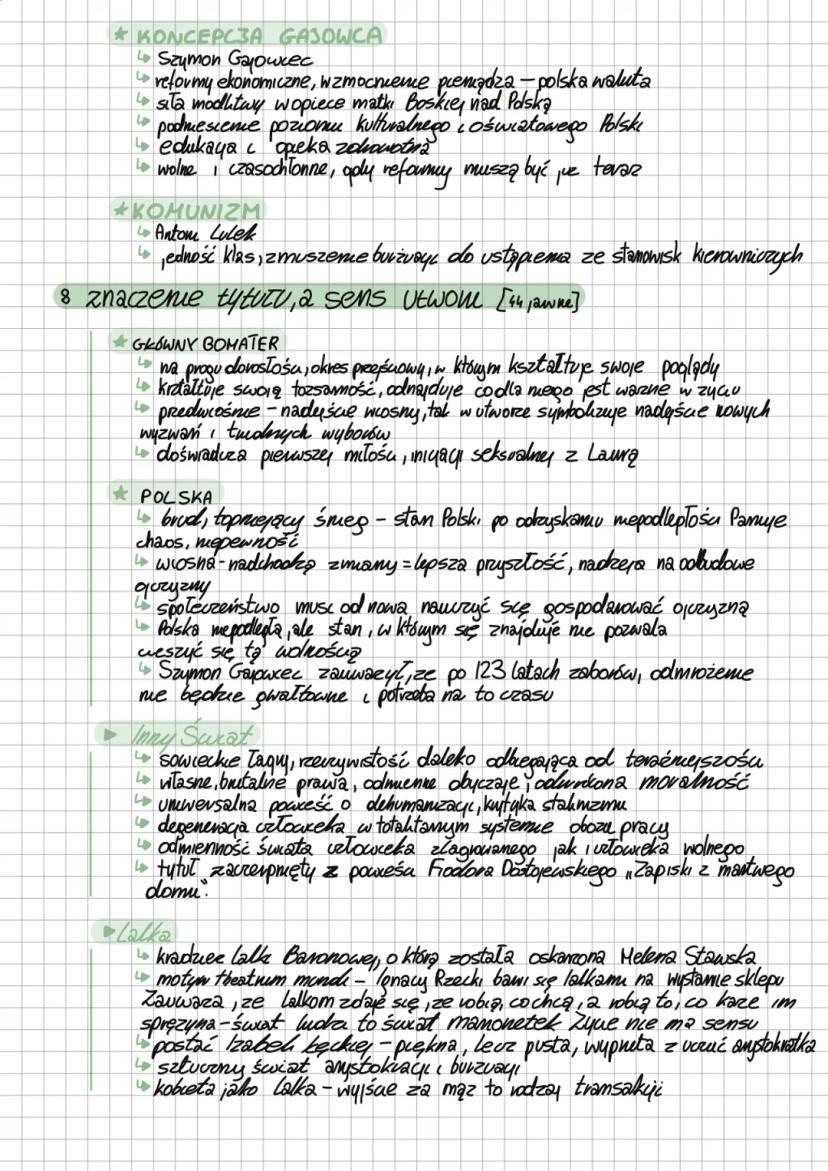 ★ KONCEPCJA GAJOWCA
↳ Szymon Gajowiec
↳ reformy ekonomiczne, wzmocnienie pieniądza – polska waluta
↳ siła modlitwy w opiece matki Boskiej nad Polską
↳ podniesienie poziomu kulturalnego i oświatowego Polski
↳ edukacja i opieka zdrowotna
↳ wolne i czasochłonne, gdy reformy muszą być już teraz
★ KOMUNIZM
↳ Antoni Lulek
↳ jedność klas, zmuszenie burżuazji do ustąpienia ze stanowisk kierowniczych
8 znaczenie tytułu, a sens utworu [44 jawne]
★ GŁÓWNY BOHATER
↳ na progu dorosłości, okres przejściowy, w którym kształtuje swoje poglądy
↳ kształtuje swoją tożsamość, odnajduje co dla niego jest ważne w życiu
↳ przedwiośnie – nadejście wiosny, tak w utworze symbolizuje nadejście nowych
wyzwań i trudnych wyborów
↳ doświadcza pierwszej miłości, inicjacji seksualnej z Laurą
★ POLSKA
↳ brud, topniejący śnieg – stan Polski po odzyskaniu niepodległości Panuje
chaos, niepewność
↳ wiosna - nadchodzą zmiany = lepsza przyszłość, nadzieja na odbudowę
ojczyzny
↳ społeczeństwo musi od nowa nauczyć się gospodarować ojczyzną
↳ Polska niepodległa, ale stan, w którym się znajduje nie pozwala
cieszyć się tą wolnością
↳ Szymon Gajowiec zauważył, że po 123 latach zaborów, odmrożenie
nie będzie gwałtowne i potrzeba na to czasu
▶ Inny Świat
↳ sowieckie łagry, rzeczywistość daleko odbiegająca od teraźniejszości
↳ własne, brutalne prawa, odmienne obyczaje i odwrócona moralność
↳ uniwersalna powieść o dehumanizacji, krytyka stalinizmu
↳ degeneracja człowieka w totalitarnym systemie obozu pracy
↳ odmienność świata człowieka zlagrowanego jak i człowieka wolnego
↳ tytuł zaczerpnięty z powieści Fiodora Dostojewskiego „Zapiski z martwego
domu".
▶ Lalka
↳ kradzież lalki Baronowej, o którą została oskarżona Helena Stawska
↳ motyw theatrum mundi – Ignacy Rzecki bawi się lalkami na wystawie sklepu
Zauważa, że lalkom zdaje się, że robią, co chcą, a robią to, co każe im
sprężyna – świat ludzi to świat marionetek Życie nie ma sensu
↳ postać Izabeli Łęckiej – piękna, lecz pusta, wyprana z uczuć arystokratka
↳ sztuczny świat arystokracji i burżuazji
↳ kobieta jako lalka – wyjście za mąż to rodzaj transakcji